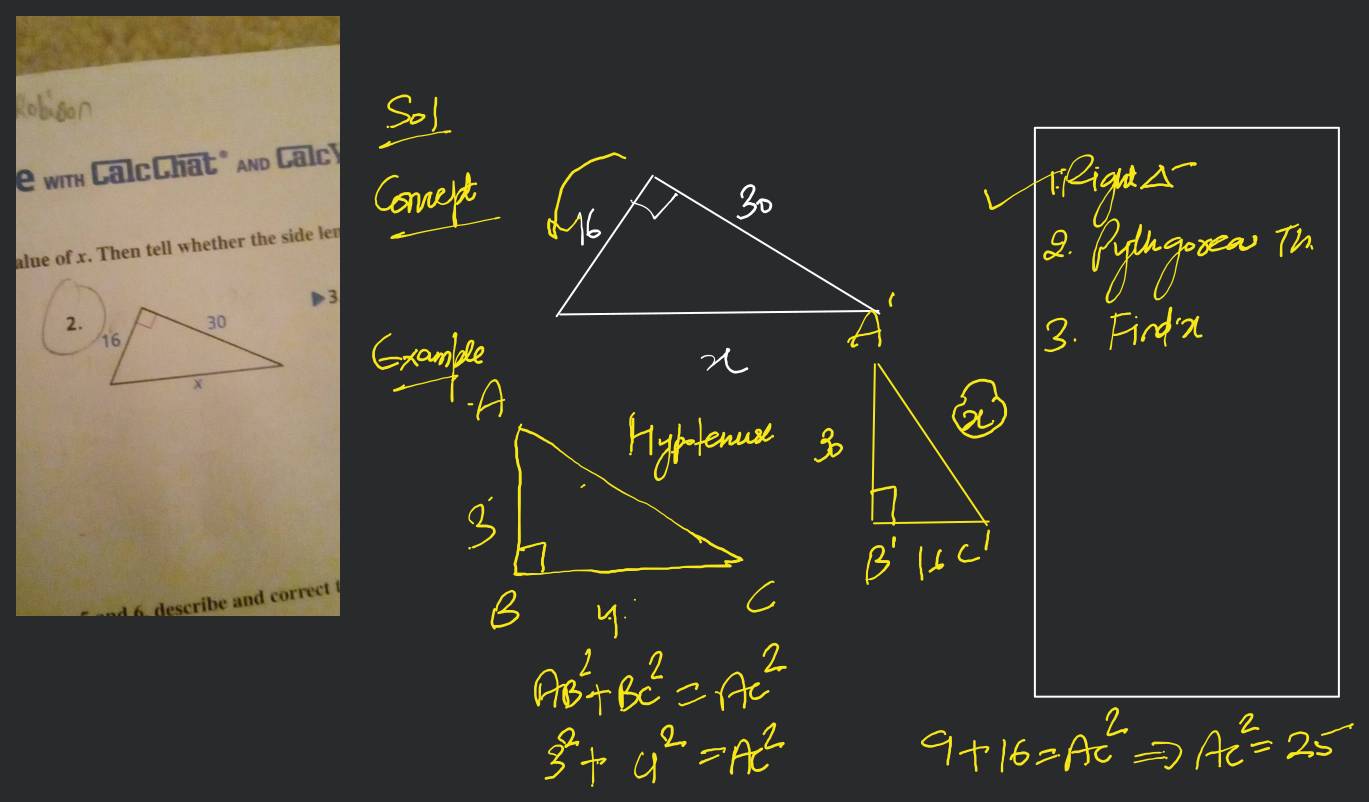 Robison
e WITH CalcChat® AND CalcY
alue of x. Then tell whether the side len
2.
3
16
30
x
5 and 6, describe and correct t
Sol
Concept
16
30
x
Example
A
3
B
4
C
Hypotenuse
A'
30
x
B' 16 C'
AB²+BC² = AC²
3²+ 4² = AC²
9+16=AC² => AC²=25
1. Right Δ
2. Pythgorean Th.
3. Find x